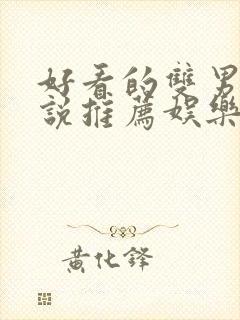 好看的雙男
說推薦娛樂
黃化鋒